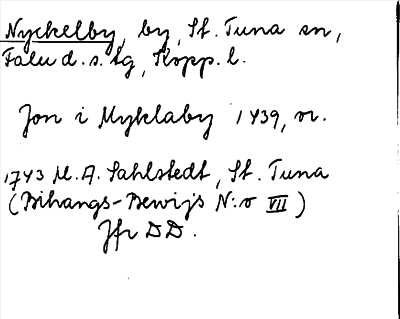 Nyckelby, by, St. Tuna sn,
Falu d. s. tg, Kopp. l.
Jon i Myklaby 1439, or.
1743 M. A. Sahlstedt, St. Tuna
(Bihangs-Bewijs N:o VII)
Jfr DD.